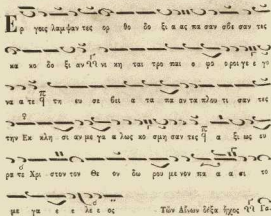 Ερ γοις λαμψαν τες ορ θο δο ξι α ας πα σαν σβε σαν τες
κα κο δο ξι αν νι κη ται τρο παι ο φο ροι γε γο
να α τε τη ευ σε βει α τα πα αν τα πλου τι σαν τες
την Εκ κλη σι αν με γα α λως κο σμη σαν τες α ξι ως ευ
ρα τε Χρι στον τον Θε ον δω ρου με νον πα α σι το
με γα ε ε λε ος Τῶν Αἴνων δόξα ἦχος